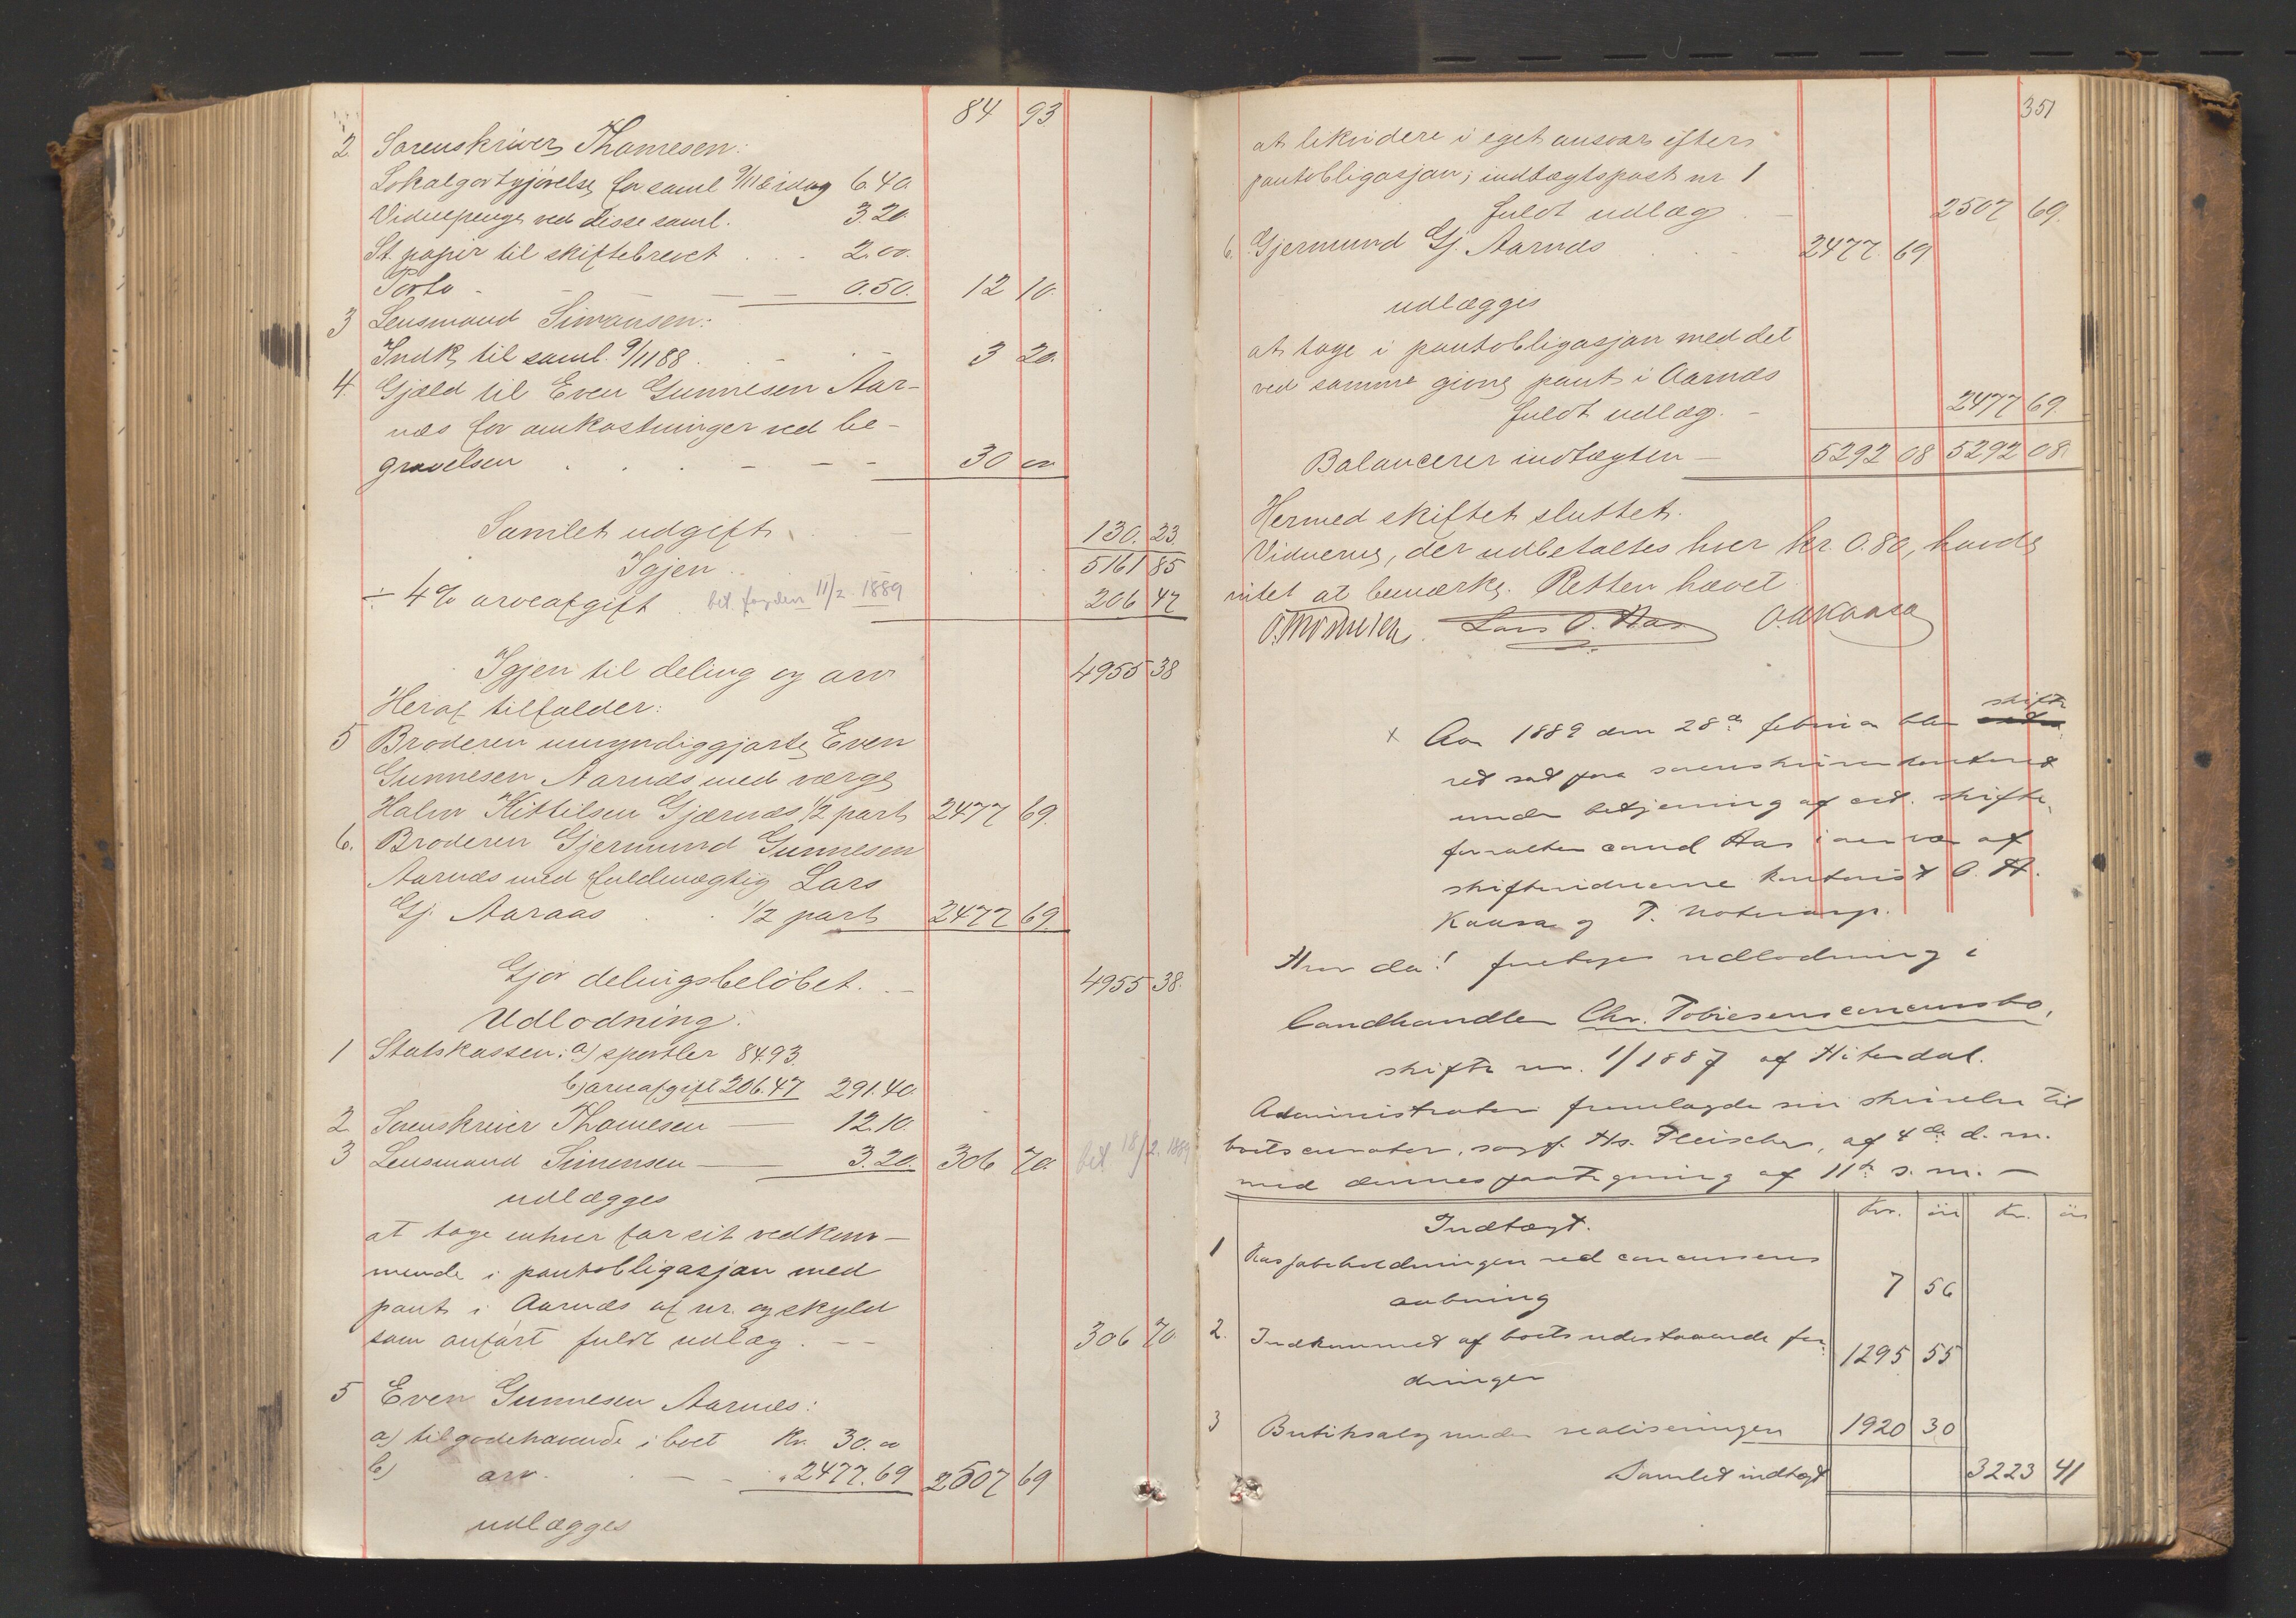 84 93
2 Sorenskriver Thomesen:
Lokalgodtgjørelse for saml 9/11 & idag 6.40
Vidnepenge ved disse saml. 3 20
St. papir til skiftebrevet . . 2.00.
Porto - — — 0.50. 12 10.
3 Lensmand Simonsen:
Indk. til saml. 9/11 88 . . - 3 20.
4. Gjæld til Even Gunnesen Aar-
næs for omkostninger ved be-
gravelsen . . . - - - 30 00
Samlet udgift . — 130. 23
Igjen .. . . 5161 85
÷ 4% arveafgift bet. fogden 11/2 1889 206 47
Igjen til deling og arv 4955 38
Heraf tilfalder:
5 Broderen umyndiggjorte Even
Gunnesen Aarnæs med værge
Halvor Kittilsen Gjærnæs 1/2 part 2477 69.
6. Broderen Gjermund Gunnesen
Aarnæs med fuldmægtig Lars
Gj. Aaraas . . 1/2 part 2477 69.
Gjør delingsbeløbet. . — 4955 38.
Udlodning:
1 Statskassen: a) sportler 84.93.
b) arveafgift 206.47 291.40.
2 Sorenskriver Thomesen — 12.10.
3 Lensmand Simonsen — 3.20. 306 70. bet. 18/2. 1889
udlægges
at tage enhver for sit vedkom-
mende i pantobligasjon med
pant i Aarnæs af nr. og skyld
som anført fuldt udlæg . — 306 70
5 Even Gunnesen Aarnæs:
a) tilgodehavende i boet Kr. 30.00
b) arv. . — - " 2477.69 2507 69
udlægges
351
at likvidere i eget ansvar efter
pantobligasjon; indtægtspost nr 1
fuldt udlæg . — 2507 69.
6. Gjermund Gj. Aarnæs . . - 2477. 69
udlægges
at tage i pantobligasjon med det
ved samme givne pant i Aarnæs
fuldt udlæg. - 2477 69.
Balancerer indtægten — 5292 08 5292 08
Hermed skiftet sluttet.
Vidnerne, der udbetaltes hver kr. 0.80, havde
intet at bemærke. Retten hævet
Lars O. Aas O. A. Kaasa
skifte
x Aar 1889 den 28de februar blev
ret sat paa sorenskriverkontoret
under betjening af ext. skifte-
forvalter cand Aas i nærvær af
skiftevidnerne kontorist O. A.
Kaasa og T.
Hvor da! foretoges udlodning i
landhandler Chr. Tobiesens concursbo,
skifte nr. 1/1887 af Hiterdal.
Administrator fremlagde sin skrivelse til
boets curator, sagf. Hs. Fleischer, af 4de d. m.
med dennes paategning af 11te s. m. —
Indtægt. Kr. øre Kr. øre
1 Kassabeholdningen ved concursens
aabning 7 56
2. Indkommet af boets udestaaende for-
dringer 1295 55
3 Butiksalg under realiseringen 1920 30
Samlet indtægt 3223 41